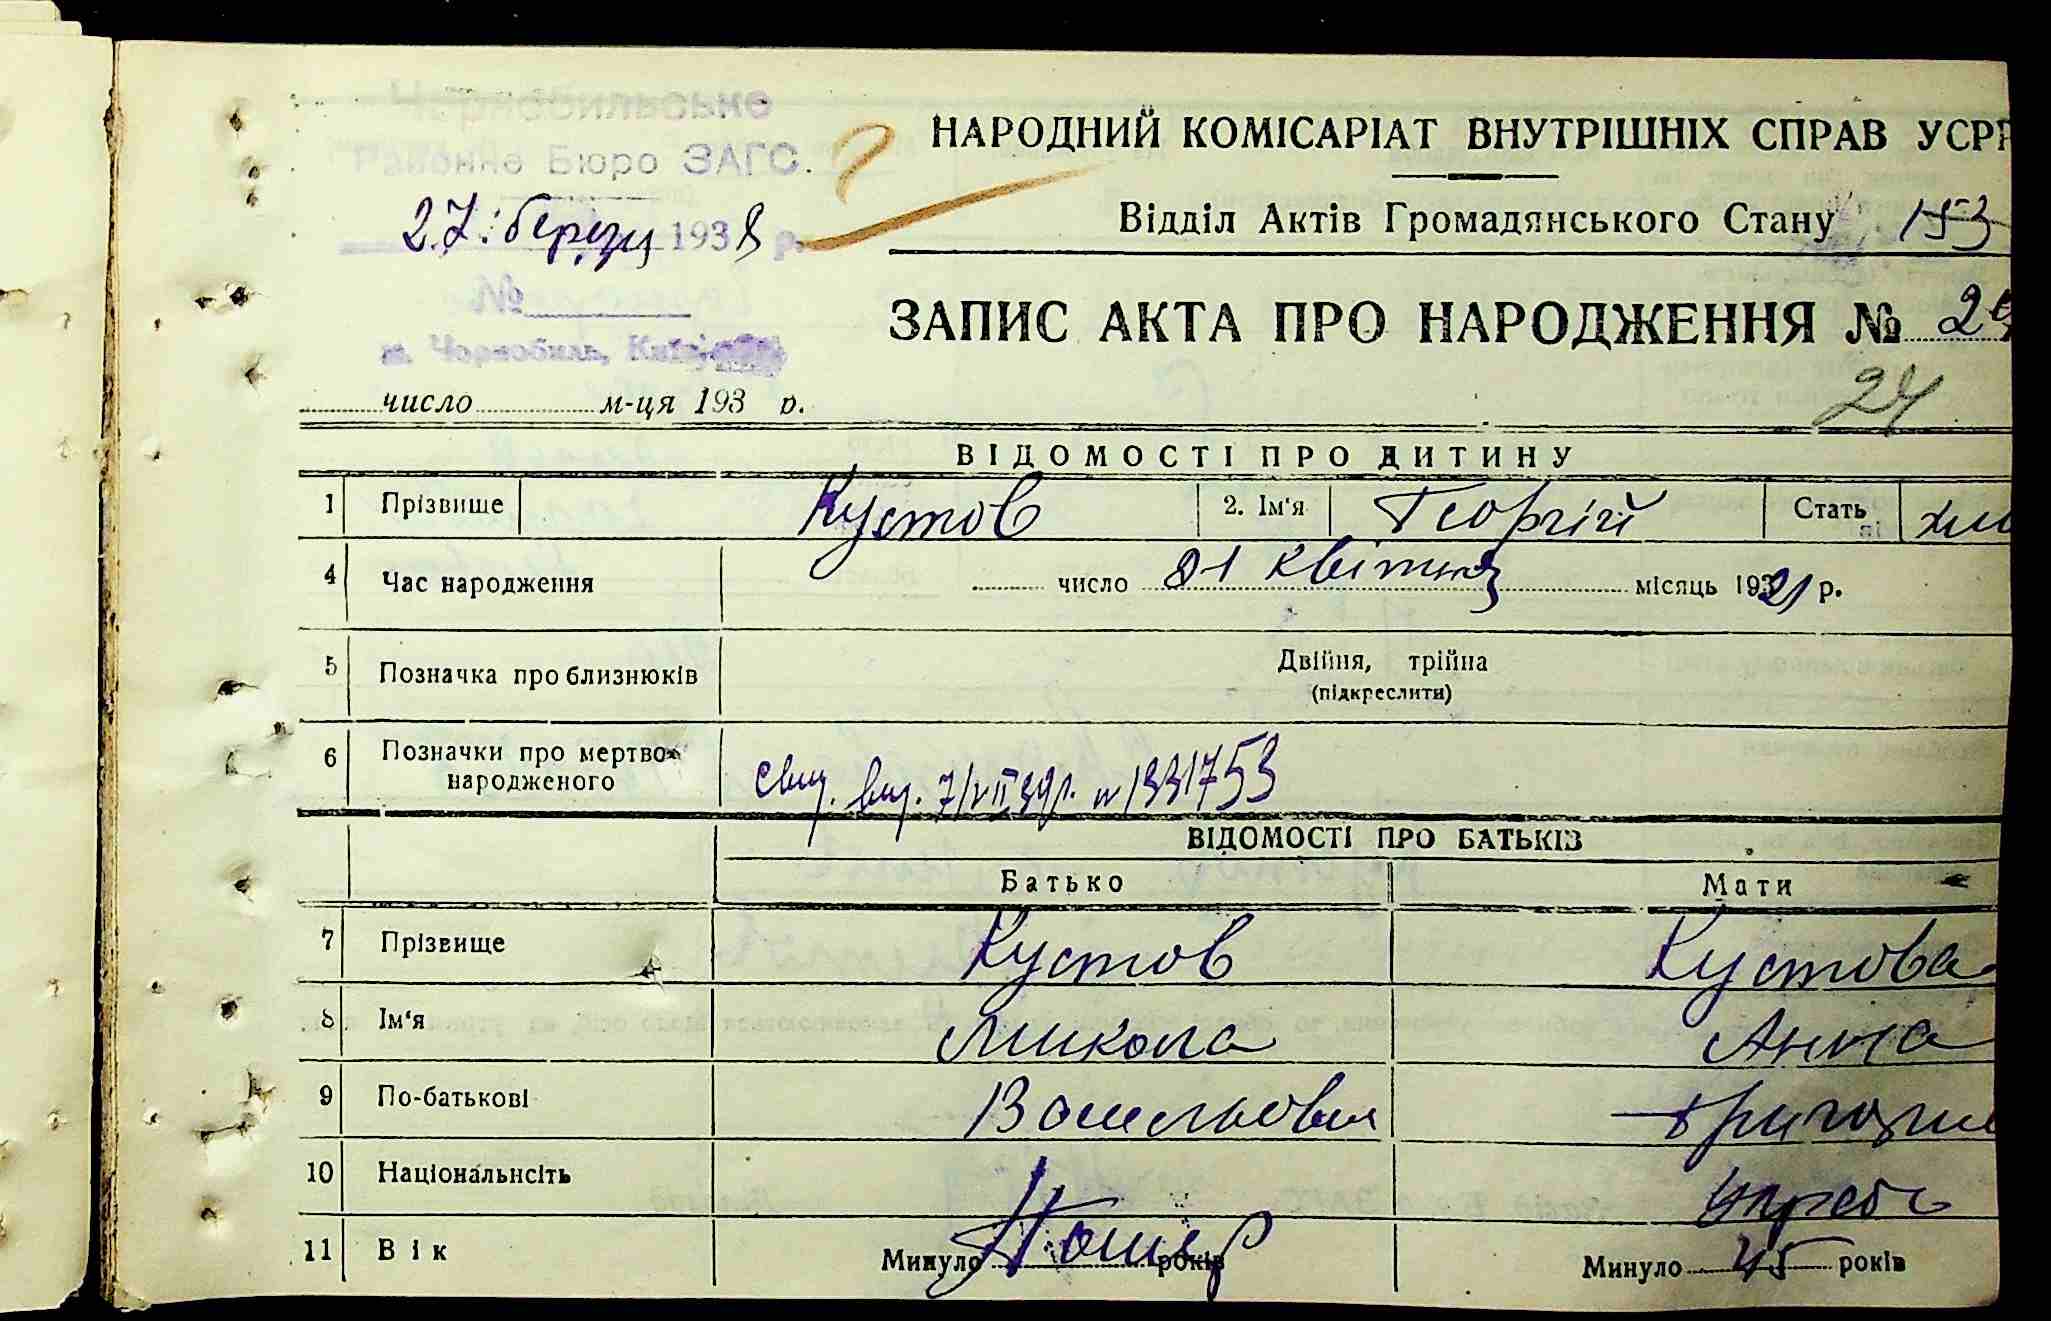 Чорнобильське
Районне Бюро ЗАГС.
27 березня 1938 р.
№
м. Чорнобиль, Київ
НАРОДНИЙ КОМІСАРІАТ ВНУТРІШНІХ СПРАВ УСРР
Відділ Актів Громадянського Стану 153
ЗАПИС АКТА ПРО НАРОДЖЕННЯ №
24
число м-ця 193 р.
ВІДОМОСТІ ПРО ДИТИНУ
1 Прізвище Кустов 2. Ім'я Георгій Стать хло
4 Час народження число 21 квітня місяць 1921 р.
5 Позначка про близнюків Двійня, трійна
(підкреслити)
6 Позначки про мертво-
народженого свид. выд. 7/VII 39 р. № 1331753
ВІДОМОСТІ ПРО БАТЬКІВ
Батько Мати
7 Прізвище Кустов Кустова
8 Ім'я Микола Анна
9 По-батькові Васильович Григорів
10 Національнсіть
11 Вік Минуло Помер років Минуло 45 років